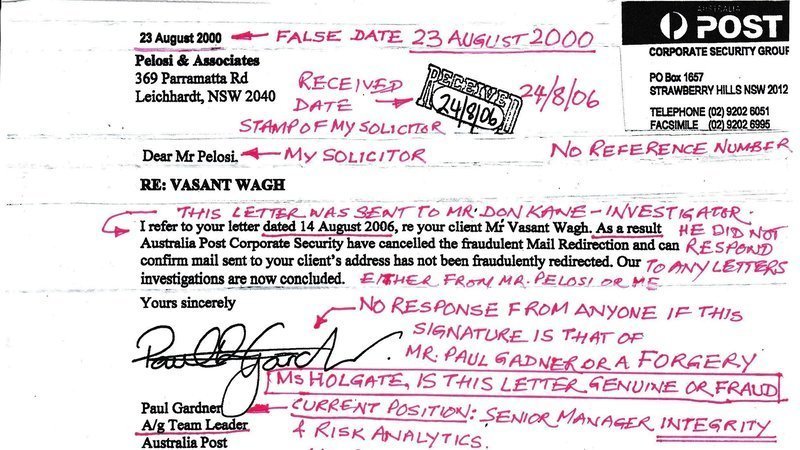 AUSTRALIA
POST
CORPORATE SECURITY GROUP
PO Box 1657
STRAWBERRY HILLS NSW 2012
TELEPHONE (02) 9202 6051
FACSIMILE (02) 9202 6995
23 August 2000 FALSE DATE 23 AUGUST 2000
Pelosi & Associates
369 Parramatta Rd
Leichhardt, NSW 2040
RECEIVED
DATE
STAMP OF MY SOLICITOR
RECEIVED
24/8/06
24/8/06
NO REFERENCE NUMBER
Dear Mr Pelosi. MY SOLICITOR
RE: VASANT WAGH
THIS LETTER WAS SENT TO MR. DON KANE - INVESTIGATOR.
HE DID NOT
RESPOND
TO ANY LETTERS
EITHER FROM MR. PELOSI OR ME
I refer to your letter dated 14 August 2006, re your client Mr Vasant Wagh. As a result
Australia Post Corporate Security have cancelled the fraudulent Mail Redirection and can
confirm mail sent to your client's address has not been fraudulently redirected. Our
investigations are now concluded.
Yours sincerely
NO RESPONSE FROM ANYONE IF THIS
SIGNATURE IS THAT OF
MR. PAUL GADNER OR A FORGERY
MS HOLGATE, IS THIS LETTER GENUINE OR FRAUD
Paul Gardner
A/g Team Leader
Australia Post
CURRENT POSITION: SENIOR MANAGER INTEGRITY
& RISK ANALYTICS.